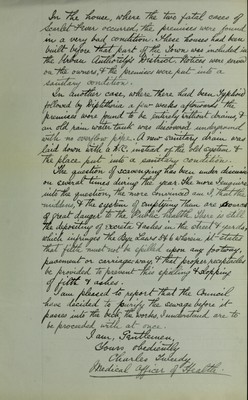 In the house, where the two fatal cases of
Scarlet Fever occurred, the premises were found
in a very bad condition. These houses had been
built before that part of the Town was included in
the Urban Authority's District. Notices were served
on the owners, & the premises were put into a
sanitary condition.
In another case, where there had been Typhoid
followed by Diphtheria a few weeks afterwards the
premises were found to be entirely without drains, &
an old rain water tank was discovered underground
with no overflow pipe. A new sanitary drain was
laid down with a W.C. instead of the old system, &
the place put into a sanitary condition.
The question of scavenging has been under discussion
on several times during the year. The more I enquire
into the question, the more convinced am I that the
middens, & the system of emptying them are sources
of great danger to the Public Health. There is still
the depositing of excreta & ashes in the street & yards,
which infringes the bye laws of wherein it states
that filth must not be spilled upon any footway,
pavement or carriage way, & that proper receptacles
be provided to prevent this spilling & slopping
of filth & ashes.
I am pleased to report that the Council
have decided to purify the sewage before it
passes into the beck, the works, I understand are to
be proceeded with at once.
I am, Gentlemen,
Yours obediently
Charles
Medical Officer of Health